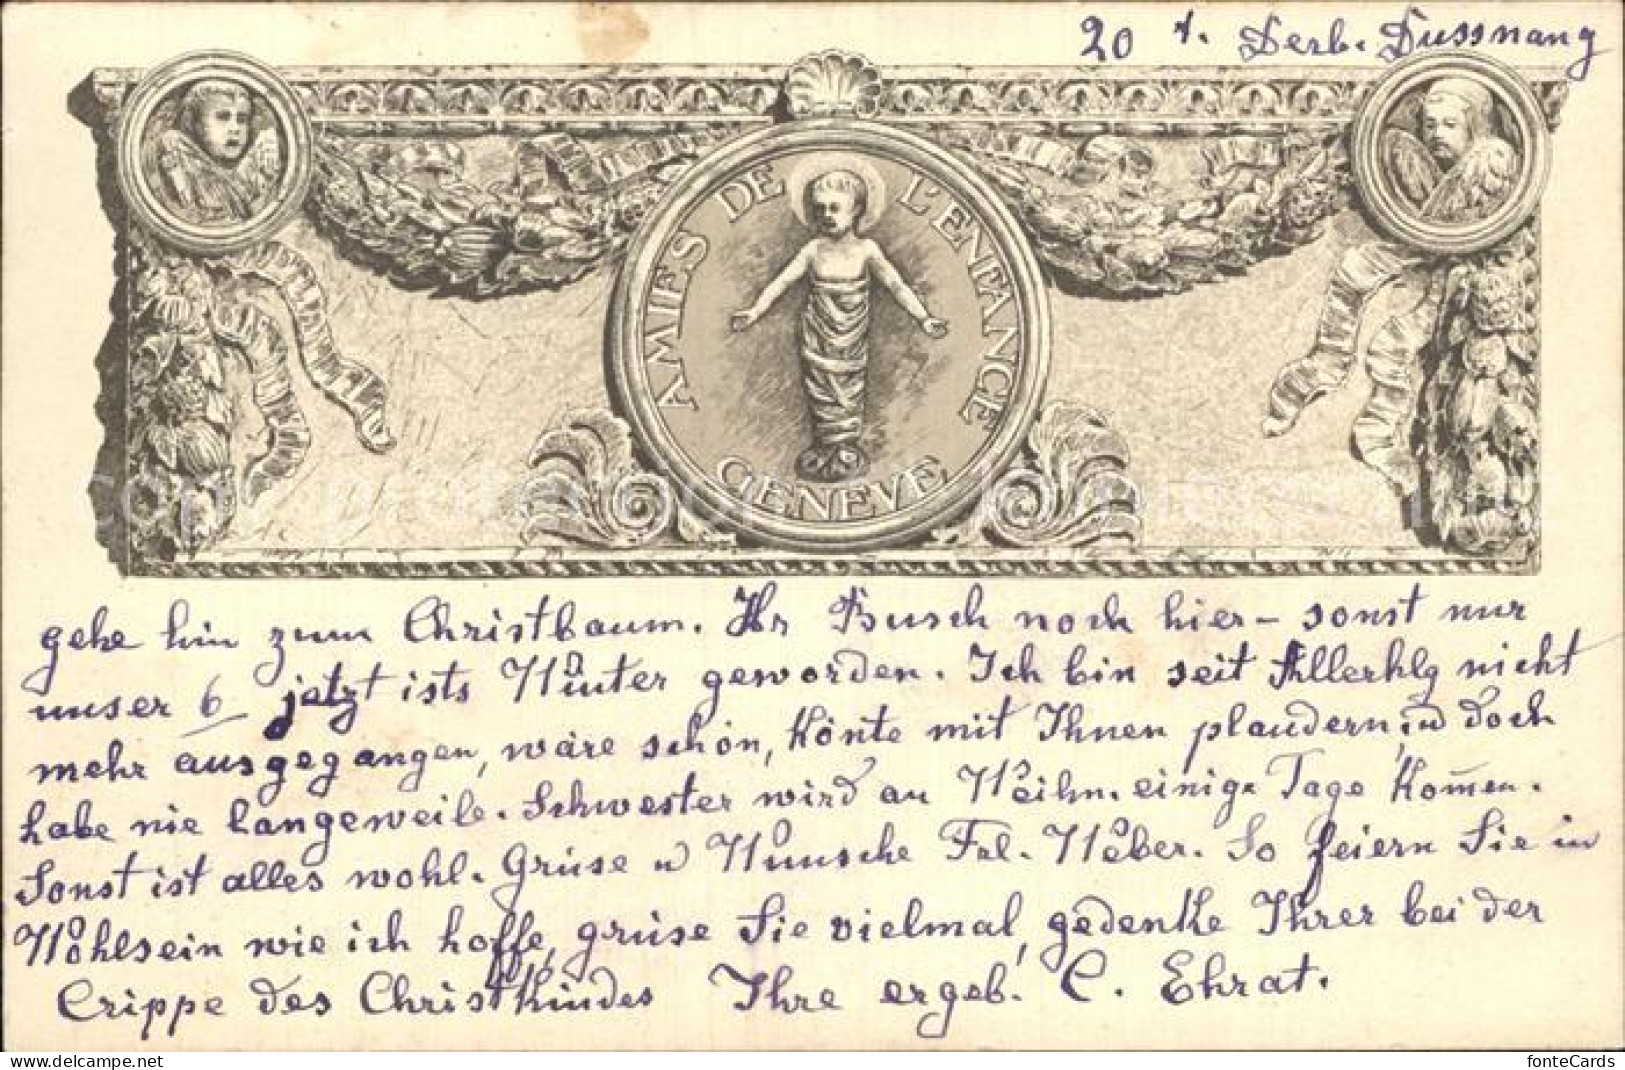 20 t. Dezb. Dussnang
AMIES DE L'ENFANCE
GENEVE
gehe hin zum Christbaum. Hr Busch noch hier – sonst nur
unser 6 jetzt ists Winter geworden. Ich bin seit Allerhlg nicht
mehr ausgegangen, wäre schön, könte mit Ihnen plaudern, u doch
habe nie langeweile. Schwester wird an Weihn. einige Tage kom̄en.
Sonst ist alles wohl. Grüse u Wünsche Frl. Weber. So feiern Sie in
Wohlsein wie ich hoffe, grüse Sie vielmal, gedenke Ihrer bei der
Crippe des Christkindes Ihre ergeb. C. Ehrat.
fonteCards